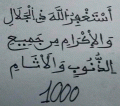 أَسْتَغْفِرُ اللَّهَ ذَا الْجَلَالِ
وَالْإِكْرَامِ مِنْ جَمِيعِ
الذُّنُوبِ وَالْآثَامِ
1000